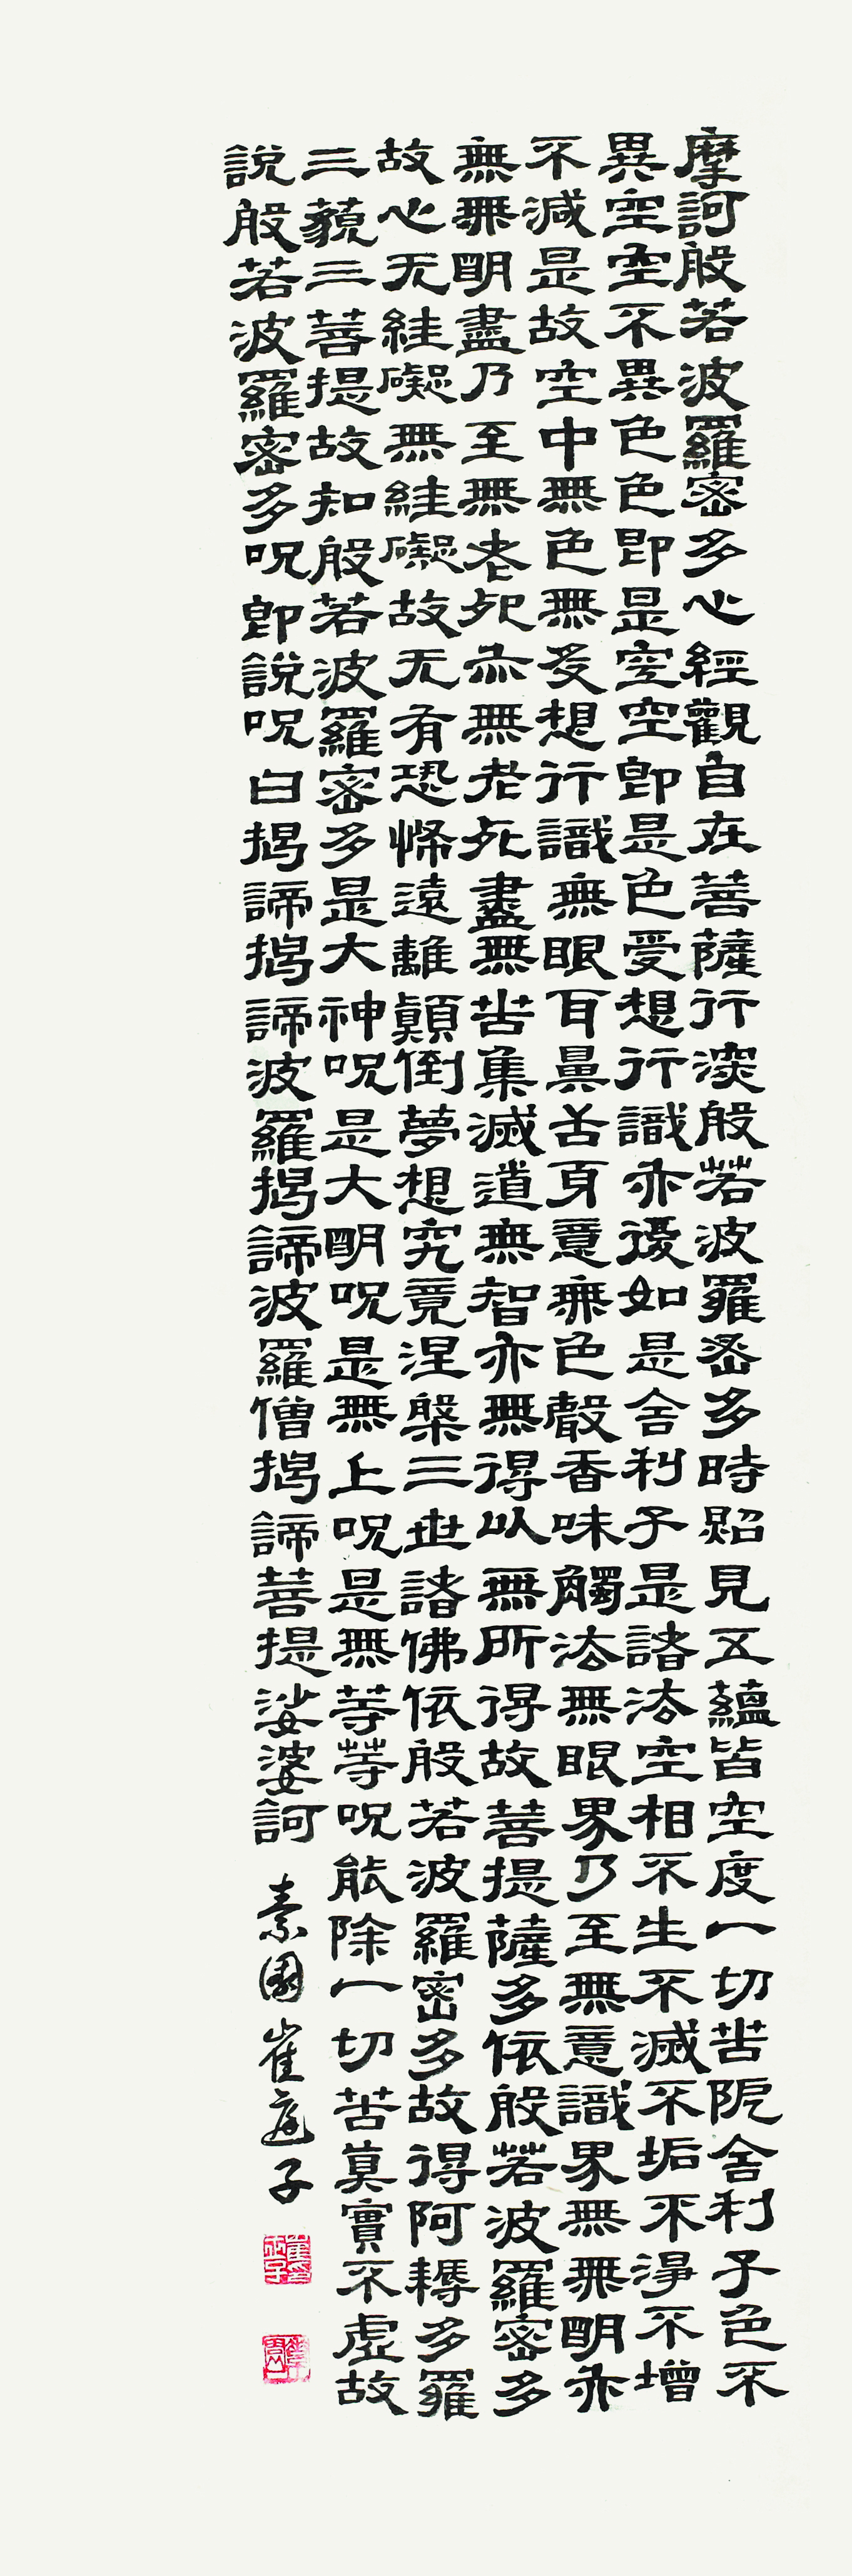 摩訶般若波羅密多心經觀自在菩薩行深般若波羅密多時照見五蘊皆空度一切苦阨舍利子色不
異空空不異色色即是空空即是色受想行識亦復如是舍利子是諸法空相不生不滅不垢不淨不增
不減是故空中無色無受想行識無眼耳鼻舌身意無色聲香味觸法無眼界乃至無意識界無無明亦
無無明盡乃至無老死亦無老死盡無苦集滅道無智亦無得以無所得故菩提薩多依般若波羅密多
故心无絓礙無絓礙故无有恐怖遠離顚倒夢想究竟涅槃三世諸佛依般若波羅密多故得阿耨多羅
三藐三菩提故知般若波羅密多是大神呪是大明呪是無上呪是無等等呪能除一切苦眞實不虛故
說般若波羅密多呪即說呪曰揭諦揭諦波羅揭諦波羅僧揭諦菩提娑婆訶 素園 崔子